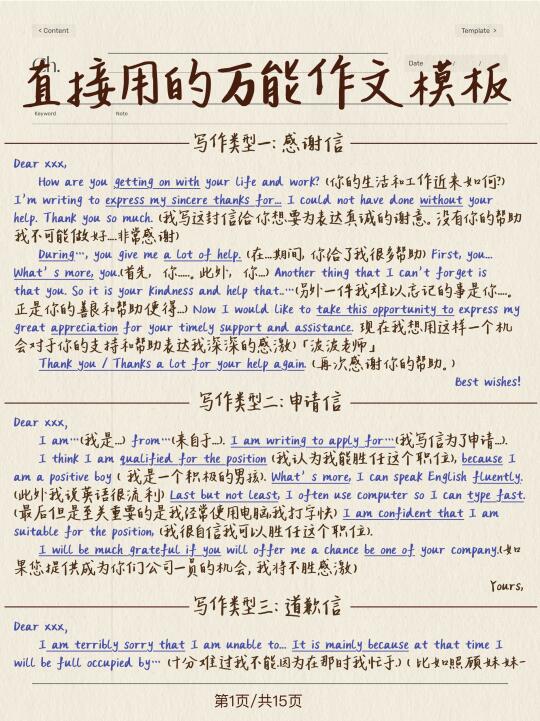 < Content
Template >
Ch.
Date / /
直接用的万能作文模板
Keyword
Note
写作类型一:感谢信
Dear xxx,
How are you getting on with your life and work? (你的生活和工作近来如何?)
I'm writing to express my sincere thanks for... I could not have done without your
help. Thank you so much. (我写这封信给你想要为表达真诚的谢意。没有你的帮助
我不可能做好....非常感谢)
During…, you give me a lot of help. (在...期间, 你给了我很多帮助) First, you...
What's more, you.(首先, 你..... 此外, 你...) Another thing that I can't forget is
that you. So it is your kindness and help that..…(另外一件我难以忘记的事是你.....
正是你的善良和帮助使得...) Now I would like to take this opportunity to express my
great appreciation for your timely support and assistance. 现在我想用这样一个机
会对于你的支持和帮助表达我深深的感激)「波波老师」
Thank you / Thanks a lot for your help again. (再次感谢你的帮助。)
Best wishes!
写作类型二:申请信
Dear xxx,
I am…(我是...) from…(来自于...). I am writing to apply for…(我写信为了申请...).
I think I am qualified for the position (我认为我能胜任这个职位), because I
am a positive boy ( 我是一个积极的男孩). What's more, I can speak English fluently.
(此外我说英语很流利) Last but not least, I often use computer so I can type fast.
(最后但是至关重要的是我经常使用电脑,我打字快) I am confident that I am
suitable for the position, (我很自信我可以胜任这个职位).
I will be much grateful if you will offer me a chance be one of your company.(如
果您提供成为你们公司一员的机会, 我将不胜感激)
Yours,
写作类型三:道歉信
Dear xxx,
I am terribly sorry that I am unable to... It is mainly because at that time I
will be full occupied by… (十分难过我不能,因为在那时我忙于.) ( 比如照顾妹妹-
第1页/共15页